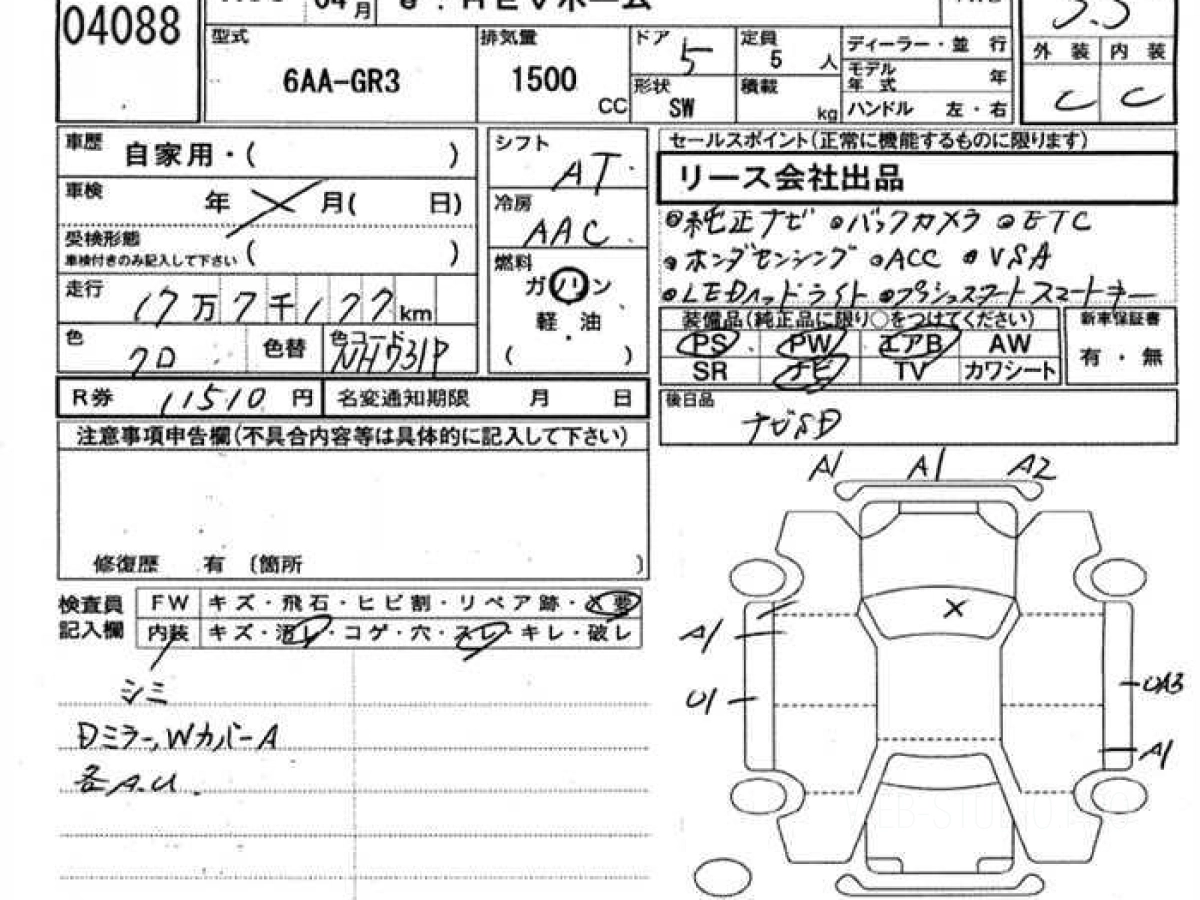 04088
04月
e:HEVホーム
3.5
型式
6AA-GR3
排気量
1500
CC
ドア 5
定員
5 人
形状
SW
積載
kg
ディーラー・並 行
モデル年式 年
ハンドル 左・右
外 装 内 装
C C
車歴 自家用・( )
車検 年 月( 日)
受検形態
車検付きのみ記入して下さい ( )
走行 17万7千177km
色 クロ 色替
色コード NH731P
シフト
AT
冷房
AAC
燃料
ガソリン
軽・油
( )
R券 11510 円
名変通知期限 月 日
セールスポイント(正常に機能するものに限ります)
リース会社出品
◎純正ナビ ◎バックカメラ ◎ETC
◎ホンダセンシング ◎ACC ◎VSA
◎LEDヘッドライト ◎プッシュスタート スマートキー
装備品(純正品に限り○をつけてください)
PS PW エアB AW
SR ナビ TV カワシート
新車保証書
有・無
後日品
ナビSD
注意事項申告欄(不具合内容等は具体的に記入して下さい)
修復歴 有 〔箇所 〕
検査員記入欄
FW キズ・飛石・ヒビ割・リペア跡・X要
内装 キズ・汚レ・コゲ・穴・スレ・キレ・破レ
シミ
Dミラー,WカバーA
各A.U.
A1 A1 A2
X
A1
U1
UA3
A1